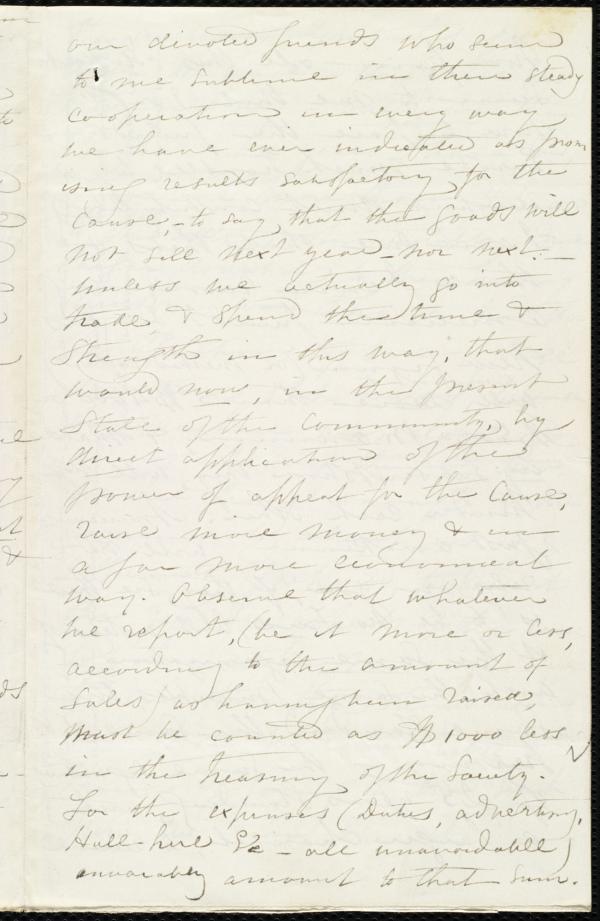 our devoted friends who seem
to me sublime in their steady
cooperation in every way
we have ever indicated as prom
ising results satisfactory for the
cause, - to say that the goods will
not sell next year - nor next. -
unless we actually go into
trade, & spend the time &
strength in this way, that
would now, in the present
State of the Community, by
direct application of the
power of appeal for the Cause,
raise more money & in
a far more economical
way. Observe that whatever
we report, (be it more or less,
according to the amount of
Sales) as having been raised,
must be counted as $1000 less
in the treasury of the Society.
For the expenses (Duties, advertising,
Hall-hire &c - all unavoidable)
invariably amount to that sum.